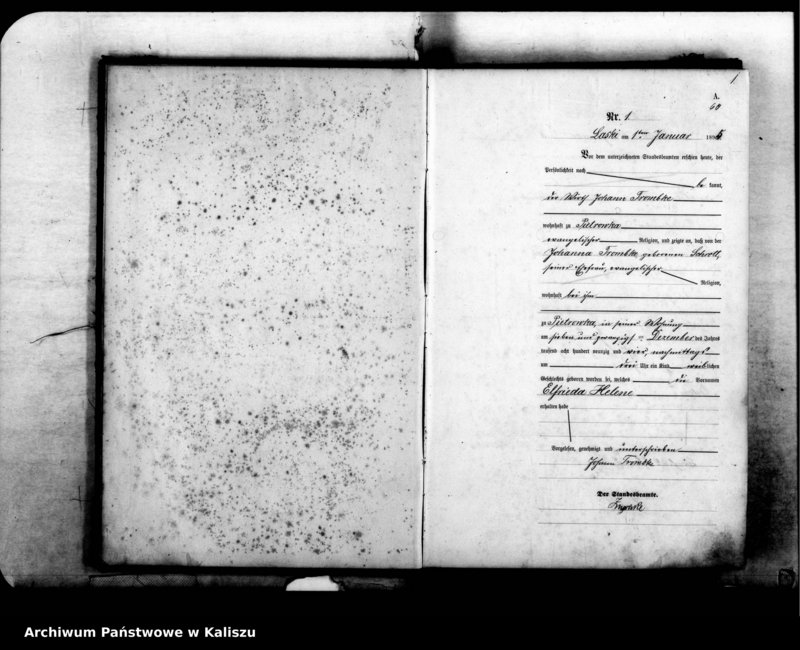 1
A.
Nr. 1
Laski am 1ten Januar 1895
Vor dem unterzeichneten Standesbeamten erschien heute, der
Persönlichkeit nach
be kannt,
der Wirth Johann Trombke
wohnhaft zu Pietrowka
evangelischer Religion, und zeigte an, daß von der
Johanna Trombke geborenen Schroll,
seiner Ehefrau, evangelischer
Religion,
wohnhaft bei ihm
zu Pietrowka, in seiner Wohnung
am sieben und zwanzigsten Dezember des Jahres
tausend acht hundert neunzig und vier, nachmittags
um drei Uhr ein Kind weiblichen
Geschlechts geboren worden sei, welches die Vornamen
Elfrieda Helene
erhalten habe
Vorgelesen, genehmigt und unterschrieben
Johann Trombke
Der Standesbeamte.
Archiwum Państwowe w Kaliszu